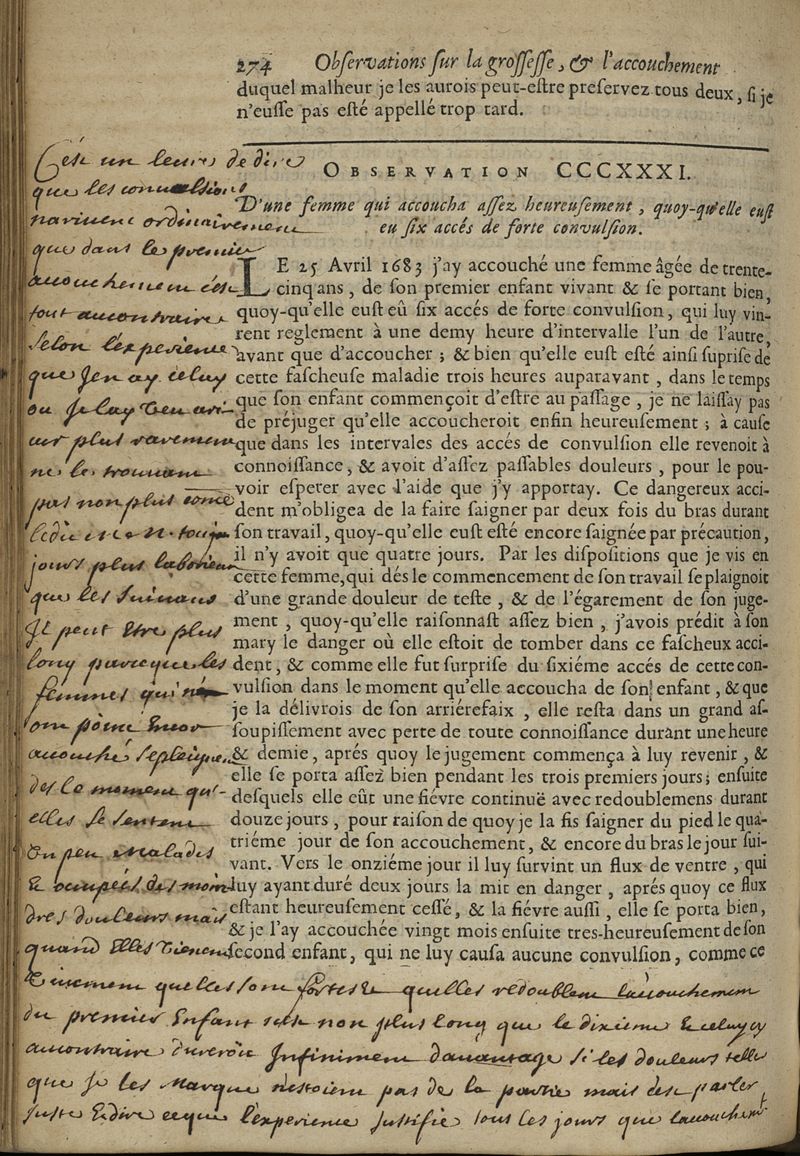 274 Obſervations ſur la groſſeſſe, & l'accouchement
duquel malheur je les aurois peut-eſtre preſervez tous deux, ſi je
n'euſſe pas eſté appellé trop tard.
OBSERVATION CCCXXXI.
D'une femme qui accoucha aſſez heureuſement, quoy-qu'elle euſt
eu ſix accés de forte convulſion.
LE 25 Avril 1683 j'ay accouché une femme âgée de trente-
cinq ans, de ſon premier enfant vivant & ſe portant bien,
quoy-qu'elle euſt eû ſix accés de forte convulſion, qui luy vin-
rent reglement à une demy heure d'intervalle l'un de l'autre,
avant que d'accoucher; & bien qu'elle euſt eſté ainſi ſupriſe de
cette faſcheuſe maladie trois heures auparavant, dans le temps
que ſon enfant commençoit d'eſtre au paſſage, je ne laiſſay pas
de préjuger qu'elle accoucheroit enfin heureuſement; à cauſe
que dans les intervales des accés de convulſion elle revenoit à
connoiſſance, & avoit d'aſſez paſſables douleurs, pour le pou-
voir eſperer avec l'aide que j'y apportay. Ce dangereux acci-
dent m'obligea de la faire ſaigner par deux fois du bras durant
ſon travail, quoy-qu'elle euſt eſté encore ſaignée par précaution,
il n'y avoit que quatre jours. Par les diſpoſitions que je vis en
cette femme, qui dés le commencement de ſon travail ſe plaignoit
d'une grande douleur de teſte, & de l'égarement de ſon juge-
ment, quoy-qu'elle raiſonnaſt aſſez bien, j'avois prédit à ſon
mary le danger où elle eſtoit de tomber dans ce faſcheux acci-
dent, & comme elle fut ſurpriſe du ſixiéme accés de cette con-
vulſion dans le moment qu'elle accoucha de ſon enfant, & que
je la délivrois de ſon arriérefaix, elle reſta dans un grand aſ-
ſoupiſſement avec perte de toute connoiſſance durant une heure
& demie, aprés quoy le jugement commença à luy revenir, &
elle ſe porta aſſez bien pendant les trois premiers jours; enſuite
deſquels elle eût une fiévre continuë avec redoublemens durant
douze jours, pour raiſon de quoy je la fis ſaigner du pied le qua-
triéme jour de ſon accouchement, & encore du bras le jour ſui-
vant. Vers le onziéme jour il luy ſurvint un flux de ventre, qui
luy ayant duré deux jours la mit en danger, aprés quoy ce flux
eſtant heureuſement ceſſé, & la fiévre auſſi, elle ſe porta bien,
& je l'ay accouchée vingt mois enſuite tres-heureuſement de ſon
ſecond enfant, qui ne luy cauſa aucune convulſion, comme ce
C'est un leure de dire
que les convulsions
que dans le premier
tout au contraire
selon l'experience
que j'en ay celuy
ou je l'ay veu ari-
ver plus rarement
ne le trouvant
pas non plus
jours plus laborieux
que les suivans
il peut etre plus
long parceque les
femmes qui n'
ont point encor
accouché se pleigne
des le moment qu'
elles se sentent
un peu malades
& occupées des moin-
dres douleurs mais
quand elles vienent
que les douleurs redoublent l'accouchement
du premier enfant n'est non plus long que le dixieme & celuy cy
au contraire dureroit infiniment davantage si les douleurs telle
que je les marque n'estoient pas de la partie mais c'est parler
juste & dire ce que l'experience justifie tous les jours que l'accouchem